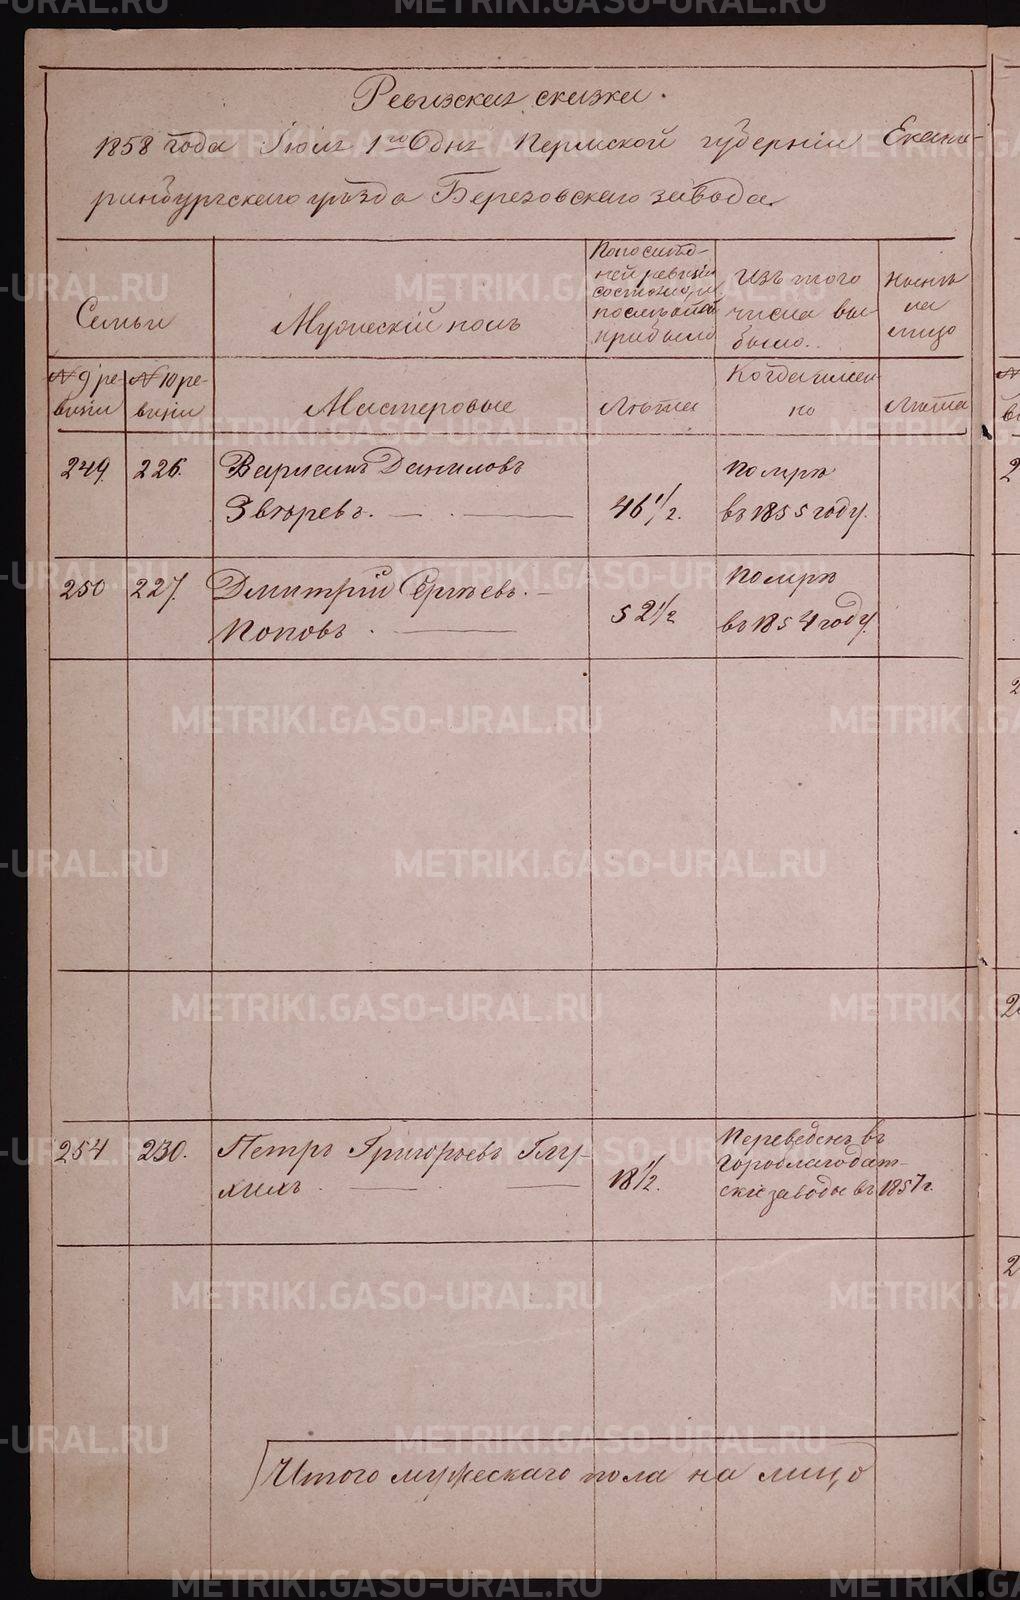 Ревизская сказка.
1858 года Іюля 1го дня Пермской губерніи Екате-
ринбургскаго уѣзда Березовскаго завода.
Семьи
Мужескій полъ
По послѣд-
ней ревизіи
состояло, и
послѣ того
прибыло
Изъ того
числа вы-
было.
Нынѣ
на
лицо
№ 9 ре-
визіи
№ 10 ре-
визіи
Мастеровые
Лѣта
Когда имен-
но
Лѣта
249.
226.
Варламъ Даниловъ
Звѣревъ.
46 1/2.
Помре
въ 1855 году.
250
227.
Дмитрій Сергѣевъ.
Поповъ.
52 1/2
Помре
въ 1854 году.
254
230.
Петръ Григорьевъ Глу-
хихъ
18 1/2.
Переведенъ въ
Гороблагодат-
скіе заводы въ 1857 г.
Итого мужескаго пола на лицо
METRIKI.GASO-URAL.RU